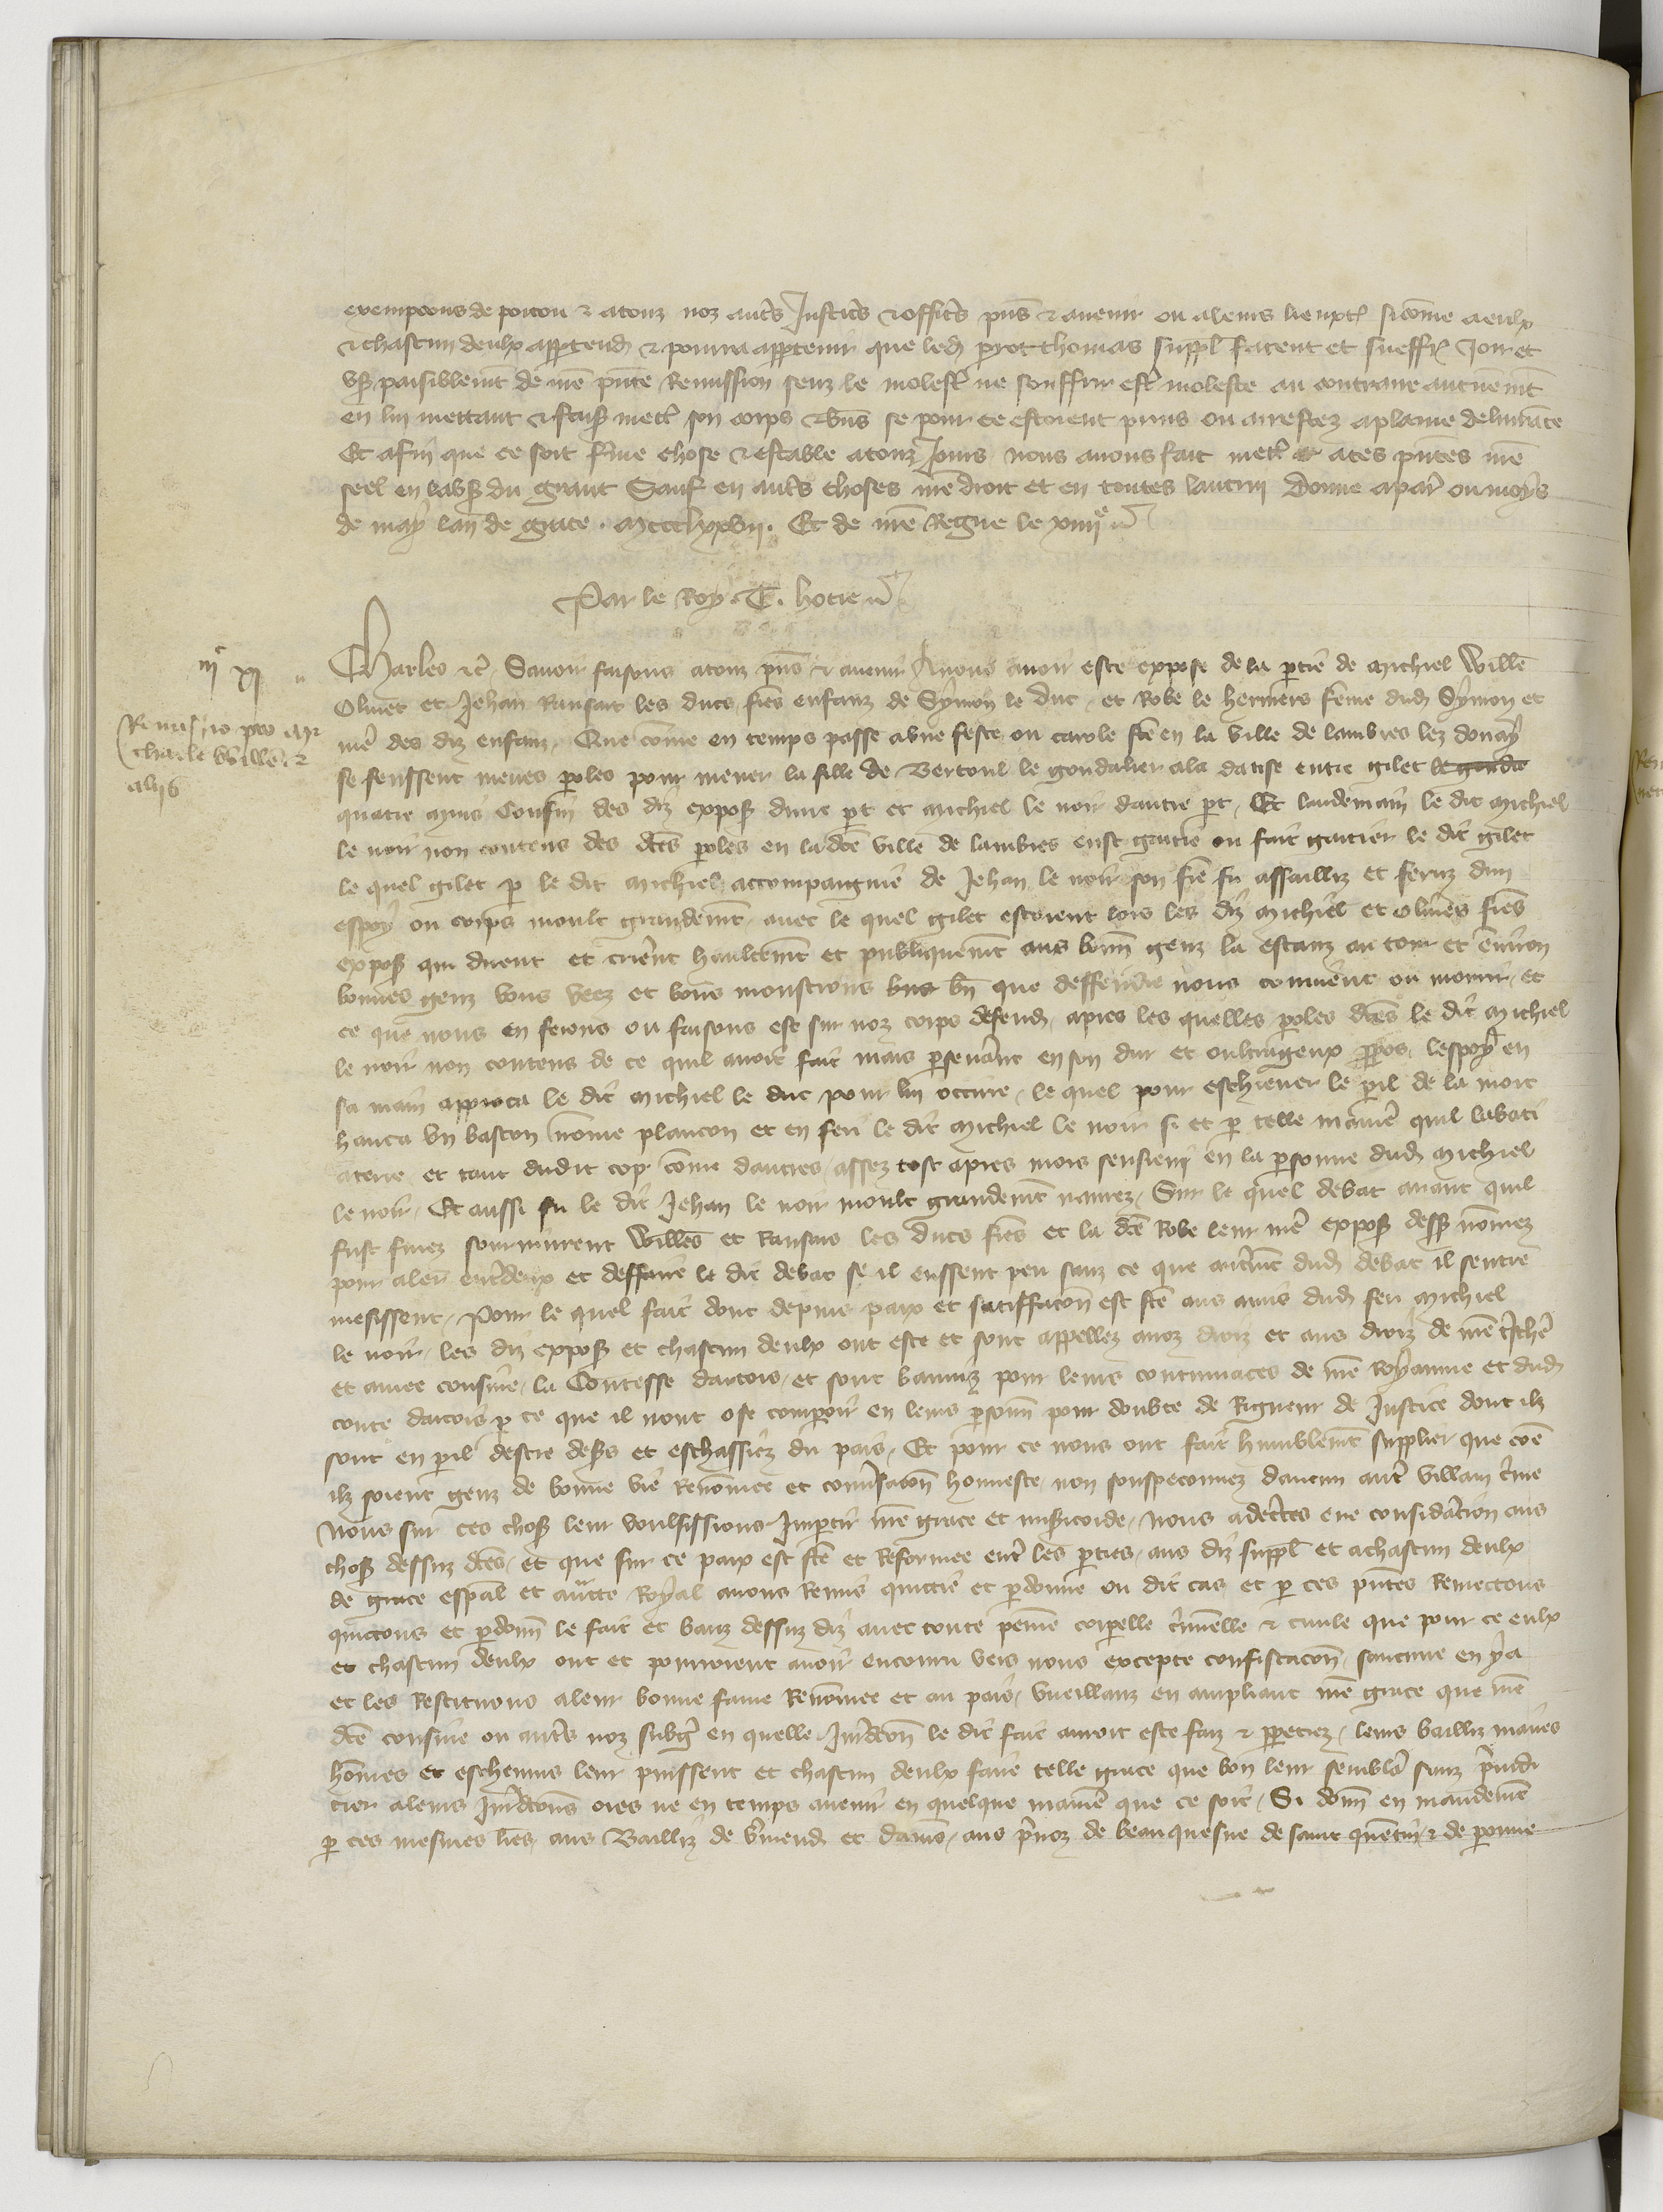 exempcons de poitou & a touz noz autrs Justiers & officrs pns & avenir ou a leurs lieuxten si come a eulx
& chascun deulx apptendra & pourra appartenir que led prot thomas suppl facent et sueffr Jouir et
user paisiblemt de nre pnte Remission senz le molester ne souffrir estr moleste au contraire aucunemt
en lui mettant & faisant mettr son corps & biens se pour ce estoient prins ou arrestez a plaine deliurace
Et afin que ce soit ferme chose & estable a touz Jours nous avons fait mettr a ces pntes nre
seel en labs du grant Sauf en autrs choses nre droit et en toutes lautrui Donne a paris ou moys
de may lan de grace . mccclxxvii . Et de nre Regne le xiiiie
Par le Roy . T . hocie
iiic xi
Charles etc Savoir faisons a touz pns & avenir A nous avoir este expose de la partie de Michiel Wille
Remissio pro Mi
chaele Wille &
aliis
Oliuer et Jehan Ransart les ducs frers enfanz de Symon le duc , et Robe le hermers feme dud Symon et
mere des diz enfanz , Que come en temps passe a une feste ou carole fte en la ville de lambres lez douay
se feussent meues paroles pour mener la fille de Bertoul le goudalier a la danse entre gilet le gouda
quatre mars Cousin des diz exposans dune pt et Michiel le noir dautre pt , Et landemain le dit Michiel
le noir non contens des dces paroles en la dce ville de lambres eust gaitie ou fait gaitier le dit gilet
le quel gilet par le dit Michiel accompaignie de Jehan le noir son fre fu assailliz et feruz dun
espoy ou corps moult grandemt , avec le quel gilet estoient lors les diz Michiel et Oliuer frers
exposans qui dirent et crierent haultemt et publiquemt aus bonn genz la estanz au tour et environ
bonnes genz vous veez et vous monstrons bn que deffendre nous convient ou mourir , et
ce que nous en ferons ou faisons est sur noz corps defend , apres les quelles paroles dces le dit Michiel
le noir non contens de ce quil avoit fait mais perseverant en son dur et oultrageux propos , lespoy en
sa main approca le dit Michiel le duc pour lui occire , le quel pour eschiever le peril de la mort
hauca un baston nome plancon et en feri le dit Michiel le noir si et par telle maniere quil labati
a terre et tant dudit cop come dautres , assez tost apres mort sensieui en la personne dud Michiel
le noir , Et aussi fu le dit Jehan le noir moult grandemt navrez , Sur le quel debat avant quil
fust finez sourvinrent Willes et Ransars les ducs frers et la dce Robe leur mere exposans dess nomez
pour aler entredeux et deffaire le dit debat se il eussent peu sanz ce que autremt dud debat il sentre
mesissent , Pour le quel fait dont depuis paix et satisfacon est fte aus amis dud feu Michiel
le noir , les diz exposans et chascun deulx ont este et sont appellez a noz droiz et aus droiz de nre treschere
et amee cousine , la Contesse dartois , et sont banniz pour leurs contumaces de nre Royaume et dud
conte dartois par ce que il nont ose comparoir en leurs personn pour doubte de Rigueur de Justice dont ilz
sont en peril destre desers et eschassiez du pais , Et pour ce nous ont fait humblemt supplier que come
ilz soient genz de bonne vie Renomee et conversacon honneste , non souspeconnez daucun autre villain crime
Nous sur ces choses leur voulsissions Impartir nre grace et misericorde , Nous adecertes eue consideracion aus
choses dessuz dces , et que sur ce paix est fte et Reformee entre les parties , aus diz suppl et a chascun deulx
de grace espal et auctte Royal avons Remis quictie et pardonne ou dit cas et par ces pntes Remectons
quictons et pardonn le fait et banz dessuz diz avec toute peine corporelle criminelle & civile que pour ce eulx
et chascun deulx ont et pourroient avoir encouru vers nous excepte confiscacon , saucune en y a
et les Restituons a leur bonne fame Renomee et au pais , vueillanz en ampliant nre grace que nre
dce cousine ou autrs noz subgez en quelle Juridicon le dit fait auroit este faiz & perpetrez , leurs bailliz maires
homes et eschevins leur puissent et chascun deulx faire telle grace que bon leur semblera sanz preiudi
cier a leurs Juridicons ores ne en temps avenir en quelque maniere que ce soit , Si donn en mandemt
par ces mesmes lres aus Bailliz de vermend et damiens , aus prevoz de beauquesne de saint quentin & de peronne